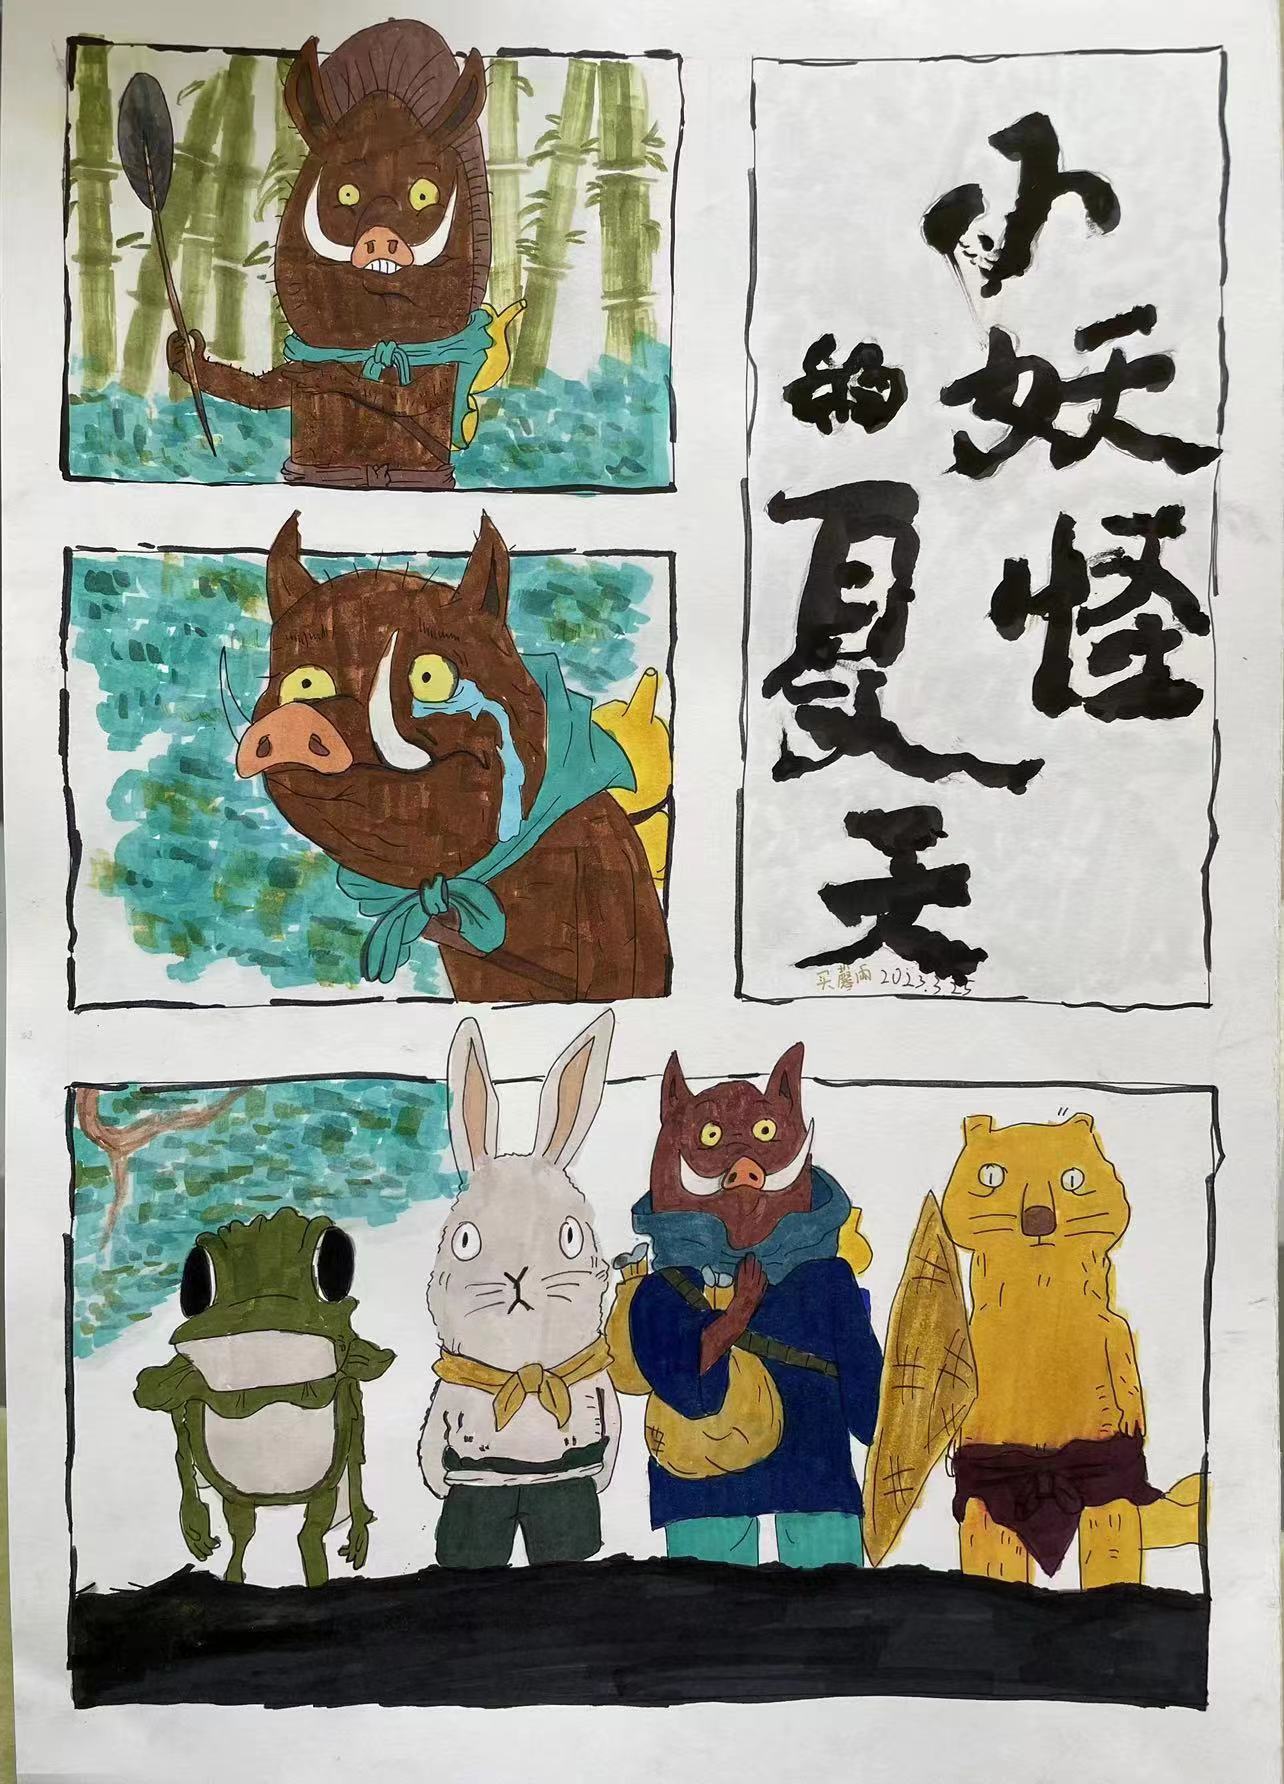 小妖怪
的夏天
买馨雨 2023.3.25